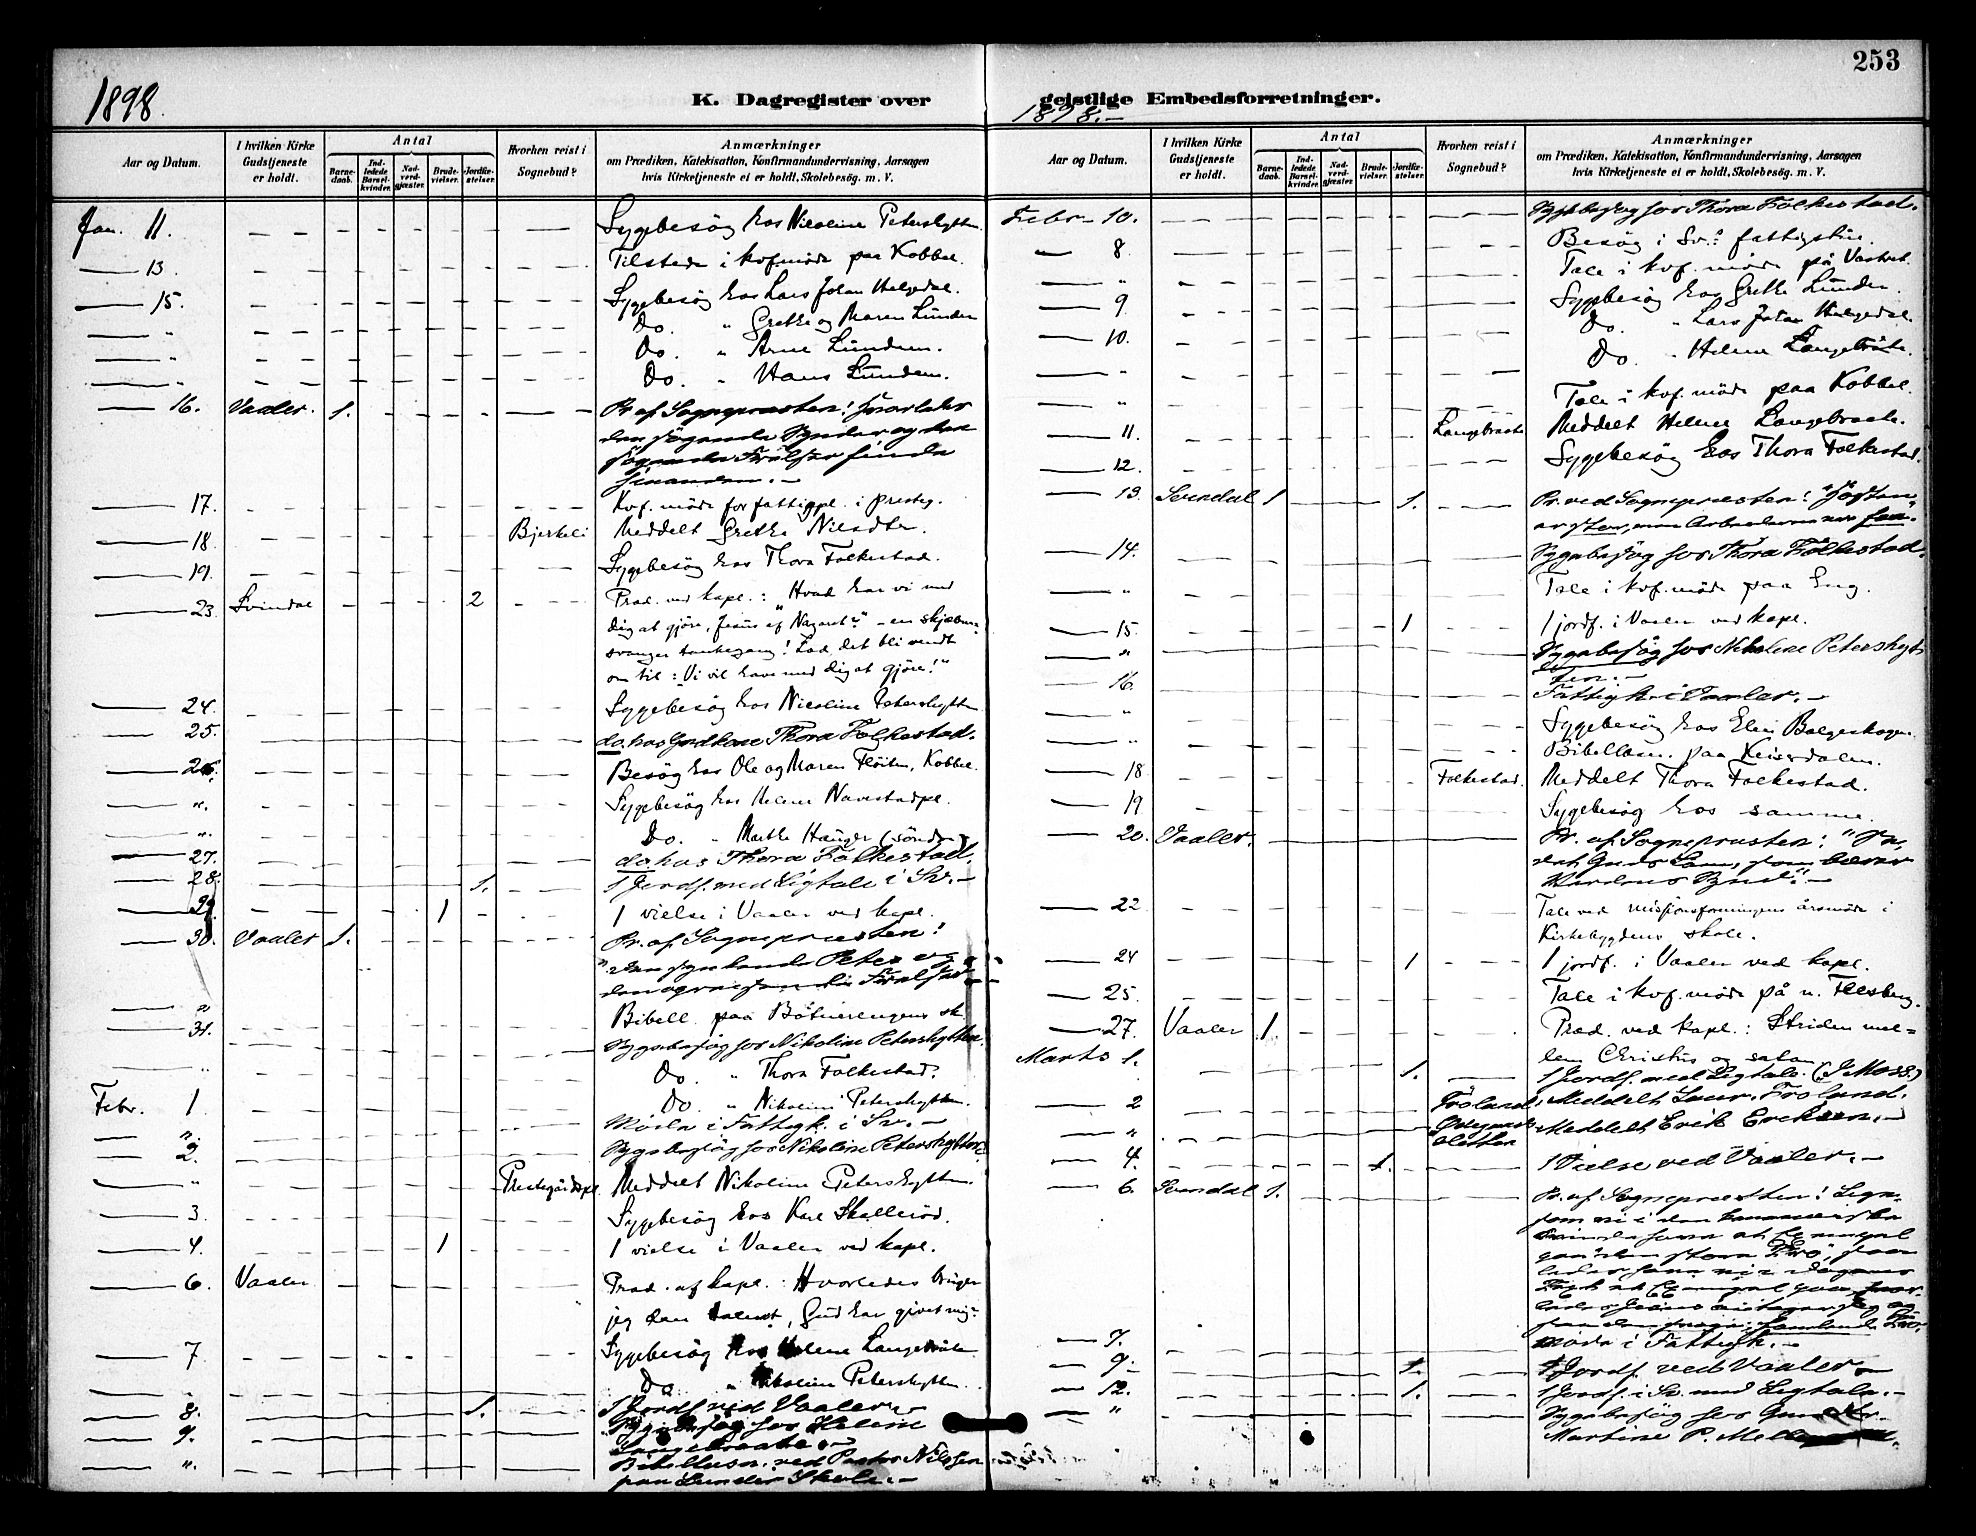 253
1898.
K. Dagregister over
Aar og Datum.
I hvilken Kirke Gudstjeneste er holdt.
Antal
Barnedaab.
Indledede Barselkvinder.
Nadverdgjæster.
Brudevielser.
Jordfæstelser.
Hvorhen reist i Sognebud?
Anmærkninger
om Prædiken, Katekisation, Konfirmandundervisning, Aarsagen
hvis Kirketjeneste ei er holdt, Skolebesøg. m. V.
Jan. 11. Sygebesøg hos Nicoline Petershytten.
13. Tilstede i kof. møde paa Kobbel.
15. Sygebesøg hos Lars Johan Helgedal.
" Do. " Grethe og Maren Lunden
" Do. " Arne Lunden.
" Do. " Hans Lunden.
16. Vaaler. 1. Pr. af Sognepræsten: Hvorledes
den søgende Synder og den
søgende Frelser finde
hinanden.
17. Kof. møde for fattigpl. i prestg.
18. Bjerkeli Meddelt Grethe Nilsdtr.
19. Sygebesøg hos Thora Folkestad.
23. Svindal 2 Præd. ved kapl.: "Hvad har vi med
dig at gjøre, Jesus af Nazaret?" - en skjæbne-
svanger tankegang! Lad det bli vendt
om til: "Vi vil have med dig at gjøre!"
24. Sygebesøg hos Nicoline Petershytten
25. do. hos Thora Folkestad.
26. Besøg hos Ole og Maren Fløiten, Kobbel.
" Sygebesøg hos Helene Navestadpl.
" Do. " Marthe Hauger (søndre)
27. do. hos Thora Folkestad.
28. 1. 1 Jordf. med Ligtale i Sv.
29. 1 1 vielse i Vaaler ved kapl.
30. Vaaler 1. Pr. af Sognepræsten:
"Den synkende Peter og
den opreisende Frelser"
" Bibell. paa Bøtnerengens sk.
31. Sygebesøg hos Nikoline Petershytten.
" Do. " Thora Folkestad.
Febr. 1. Do. " Nikoline Petershytten.
" Møde i Fattigk. i Sv.
2. Sygebesøg hos Nikoline Petershytten
" Prestegårdspl. Meddelt Nikoline Petershytten.
3. Sygebesøg hos Karl Skallerød.
4. 1 1 vielse i Vaaler ved kapl.
6. Vaaler Præd. af kapl.: Hvorledes bruger
jeg den talent, Gud har givet mig?
7. Sygebesøg hos Helene Langebråten
" Do. " Nikoline Petershytten.
8. 1. 1 Jordf. ved Vaaler.
9. Sygebesøg hos Helene
Langebraate.
" Bibellæsn. ved Pastor Nilssen
paa Lunder Skole.
1898.
geistlige Embedsforretninger.
Aar og Datum.
I hvilken Kirke Gudstjeneste er holdt.
Antal
Barnedaab.
Indledede Barselkvinder.
Nadverdgjæster.
Brudevielser.
Jordfæstelser.
Hvorhen reist i Sognebud?
Anmærkninger
om Prædiken, Katekisation, Konfirmandundervisning, Aarsagen
hvis Kirketjeneste ei er holdt, Skolebesøg. m. V.
Febr. 10. Sygebesøg hos Thora Folkestad.
8 Besøg i Sv.s fattighus.
" Tale i kof. møde på
9 Sygebesøg hos Grethe Lunden.
10. Do. " Lars Johan Helgedal.
" Do. " Helene Langebråte.
" Tale i kof. møde paa Kobbel.
11. Langebråte Meddelt Helene Langebraate.
12. Sygebesøg hos Thora Folkestad.
13. Svindal 1 1. Pr. ved Sognepræsten: "Høsten
er stor, men Arbeiderne ere faa".
14. Sygebesøg hos Thora Folkestad.
" Tale i kof. møde paa Eng.
15. 1 1 jordf. i Vaaler ved kapl.
" Sygebesøg hos Nikoline Petershyt-
ten.
16. Fattigk. i Vaaler.
" Sygebesøg hos Elen Bolgeskogen.
" Bibellæsn. paa Keiserdalen.
18 Folkestad. Meddelt Thora Folkestad.
19 Sygebesøg hos samme.
20. Vaaler. Pr. af Sognepræsten: "Se,
det Guds Lam, som bærer
Verdens Synd".
22 Tale ved missionsforeningens årsmøde i
Kirkebygdens skole.
24 1 1 jordf. i Vaaler ved kapl.
25. Tale i kof. møde på n. Flesberg.
27. Vaaler 1. Præd. ved kapl.: Striden mel-
lem Christus og satan.
Marts 1. 1. 1 Jordf. med Ligtale. (I Moss.)
2 Frøland. Meddelt Laur. Frøland.
" Meddelt Erik Eriksen.
4. 1. 1 Vielse ved Vaaler.
6. Svindal 1. Pr. af Sognepræsten: Lige-
som vi i den kananæiske
Kvinde
"den store Tro",
7. Møde i Fattigk.
9. 1. 1 Jordf. ved Vaaler
12. 1. 1 Jordf. i Sv. med Ligtale.
" Sygebesøg hos
Martine P.